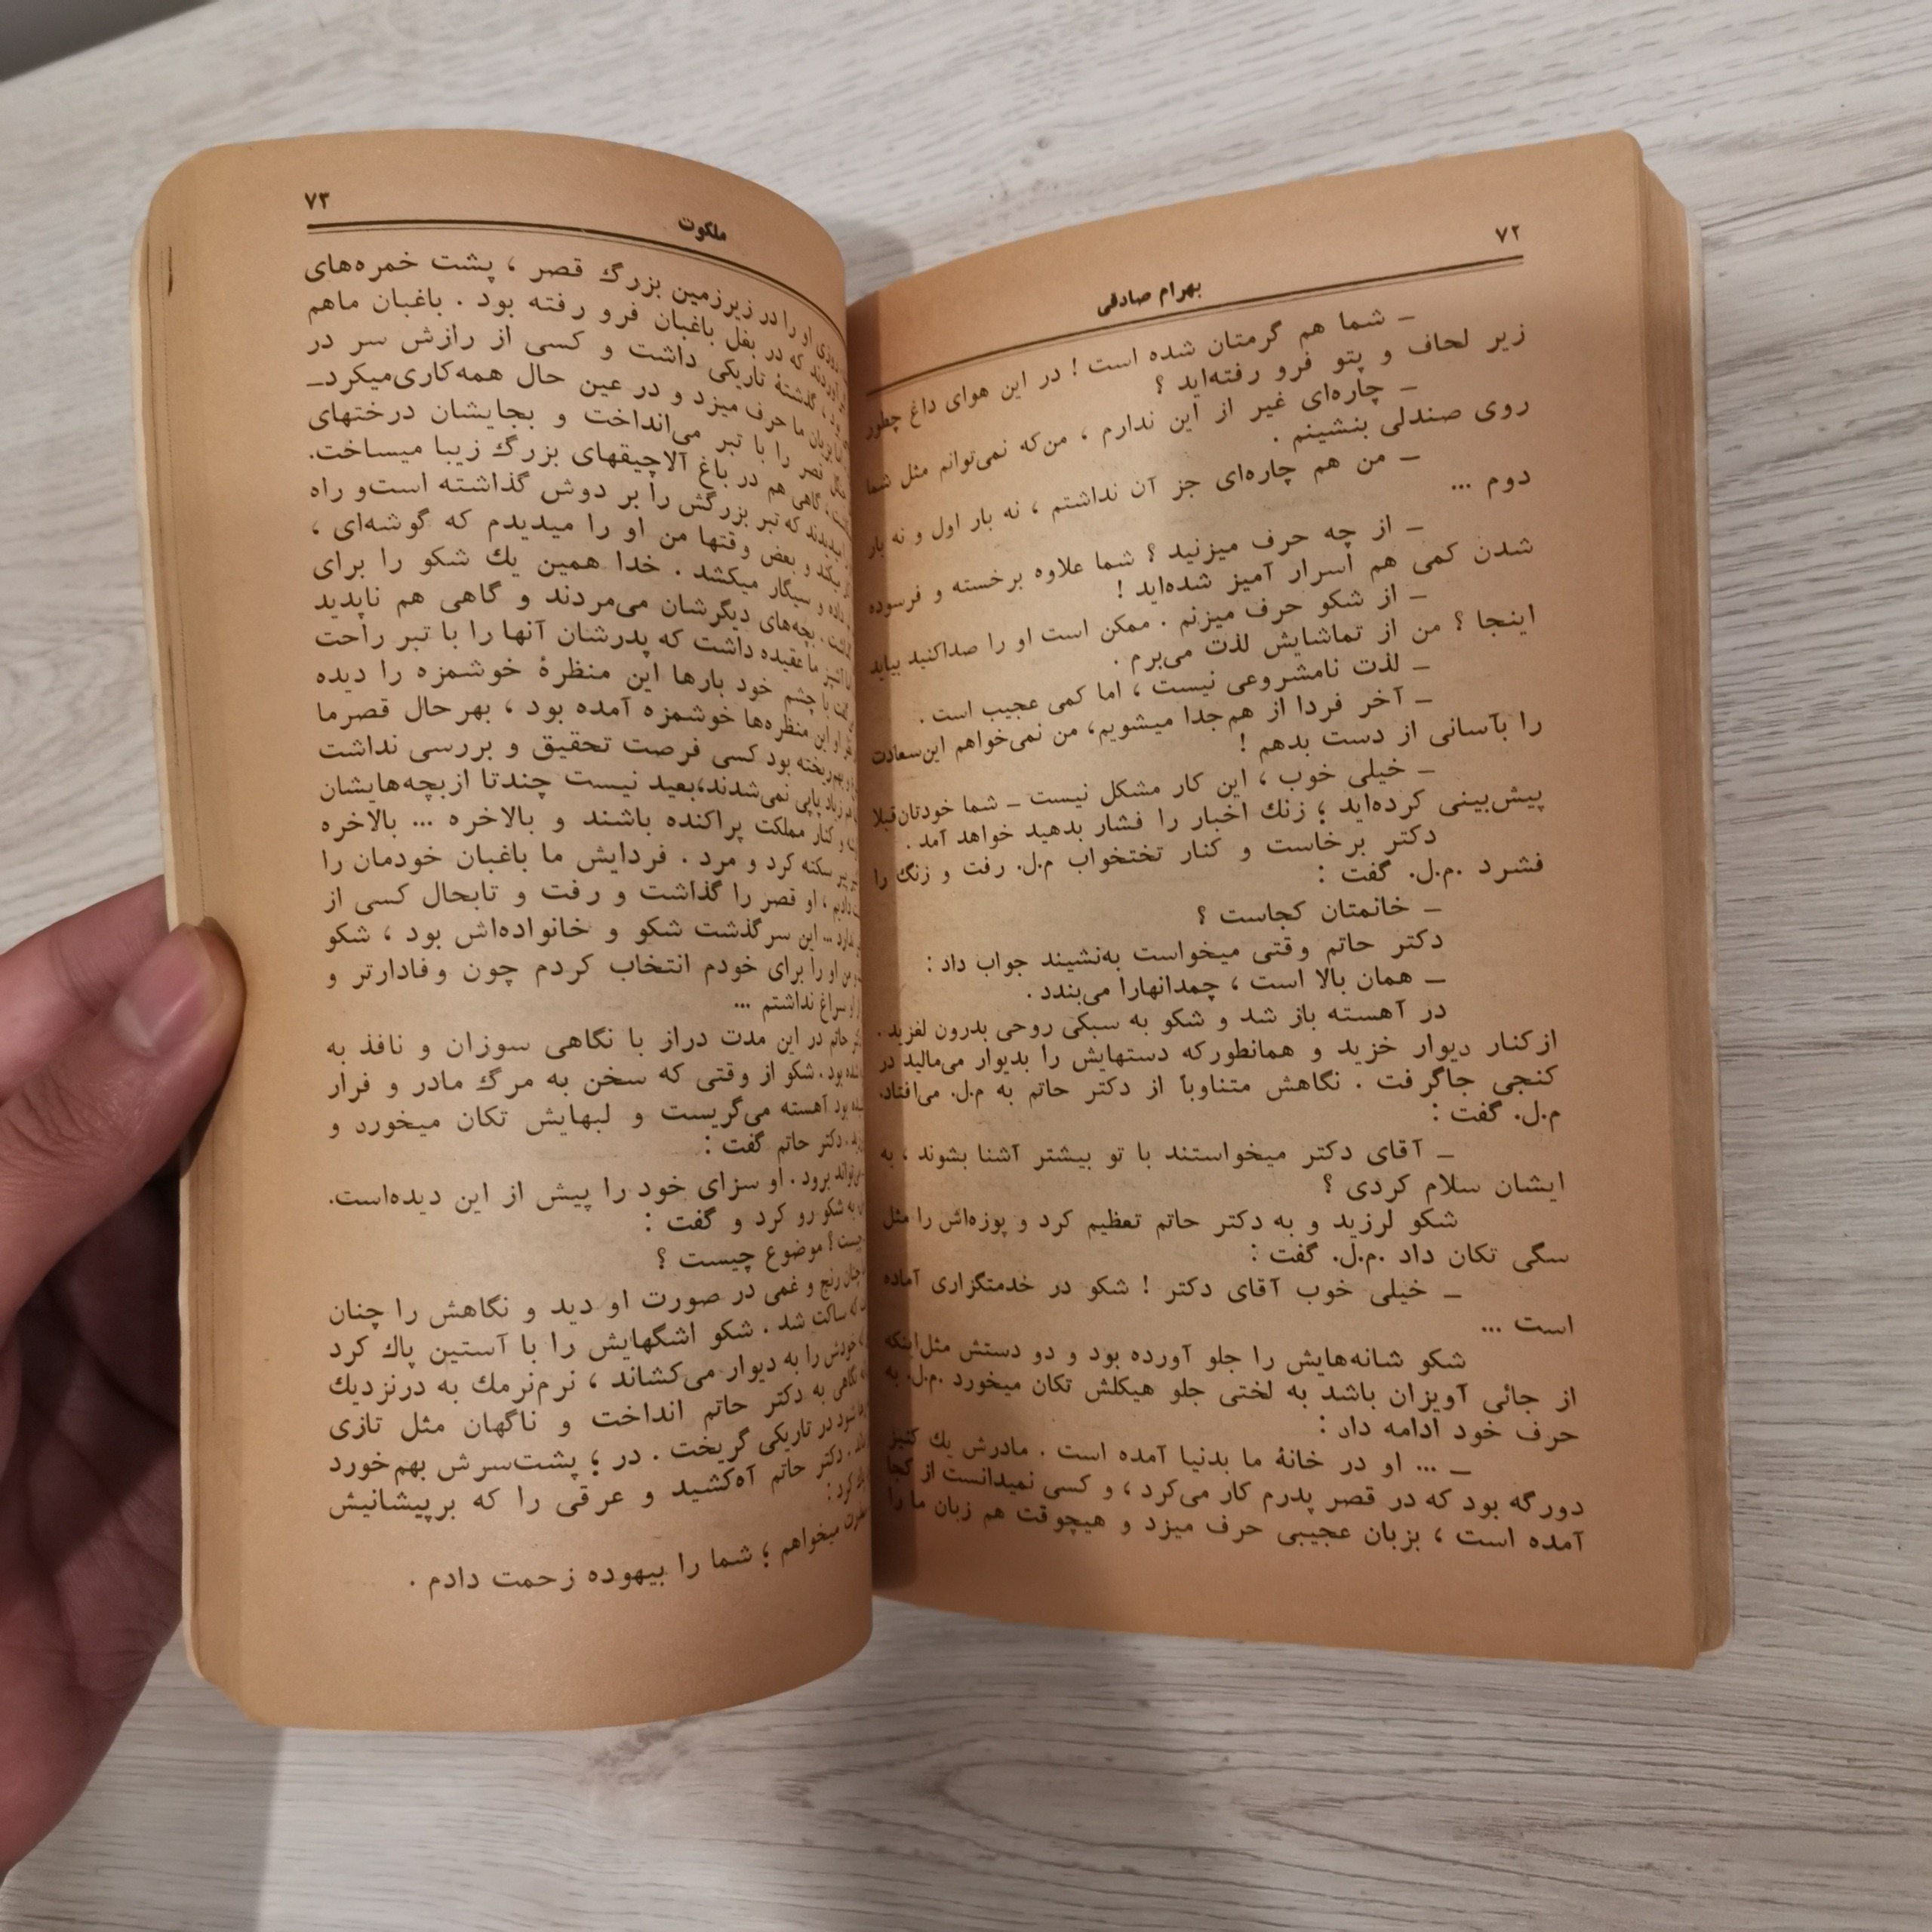 ۷۲
بهرام صادقی
ـ شما هم گرمتان شده است ! در این هوای داغ چطور
زیر لحاف و پتو فرو رفته‌اید ؟
ـ چاره‌ای غیر از این ندارم ، من‌که نمی‌توانم مثل شما
روی صندلی بنشینم .
ـ من هم چاره‌ای جز آن نداشتم ، نه بار اول و نه بار
دوم ...
ـ از چه حرف میزنید ؟ شما علاوه برخسته و فرسوده
شدن کمی هم اسرار آمیز شده‌اید !
ـ از شکو حرف میزنم . ممکن است او را صداکنید بیاید
اینجا ؟ من از تماشایش لذت می‌برم .
ـ لذت نامشروعی نیست ، اما کمی عجیب است .
ـ آخر فردا از هم‌جدا میشویم، من نمی‌خواهم این‌سعادت
را بآسانی از دست بدهم !
ـ خیلی خوب ، این کار مشکل نیست ـ شما خودتان‌قبلا
پیش‌بینی کرده‌اید ؛ زنك اخبار را فشار بدهید خواهد آمد .
دکتر برخاست و کنار تختخواب م.ل. رفت و زنگ را
فشرد .م.ل. گفت :
ـ خانمتان کجاست ؟
دکتر حاتم وقتی میخواست به‌نشیند جواب داد :
ـ همان بالا است ، چمدانهارا می‌بندد .
در آهسته باز شد و شکو به سبکی روحی بدرون لغزید .
ازکنار دیوار خزید و همانطورکه دستهایش را بدیوار می‌مالید در
کنجی جاگرفت . نگاهش متناوباً از دکتر حاتم به م.ل. می‌افتاد.
م.ل. گفت :
ـ آقای دکتر میخواستند با تو بیشتر آشنا بشوند ، به
ایشان سلام کردی ؟
شکو لرزید و به دکتر حاتم تعظیم کرد و پوزه‌اش را مثل
سگی تکان داد .م.ل. گفت :
ـ خیلی خوب آقای دکتر ! شکو در خدمتگزاری آماده
است ...
شکو شانه‌هایش را جلو آورده بود و دو دستش مثل‌اینکه
از جائی آویزان باشد به لختی جلو هیکلش تکان میخورد .م.ل. به
حرف خود ادامه داد :
ـ ... او در خانهٔ ما بدنیا آمده است . مادرش یك کنیز
دورگه بود که در قصر پدرم کار می‌کرد ، و کسی نمیدانست از کجا
آمده است ، بزبان عجیبی حرف میزد و هیچوقت هم زبان ما را
۷۳
ملکوت
او را در زیرزمین بزرگ قصر ، پشت خمره‌های
که در بغل باغبان فرو رفته بود . باغبان ماهم
گذشتهٔ تاریکی داشت و کسی از رازش سر در
ما حرف میزد و در عین حال همه‌کاری‌میکرد-
قصر را با تبر می‌انداخت و بجایشان درختهای
گاهی هم در باغ آلاچیقهای بزرگ زیبا میساخت.
که تبر بزرگش را بر دوش گذاشته است‌و راه
و بعض وقتها من او را میدیدم که گوشه‌ای ،
داده و سیگار میکشد . خدا همین یك شکو را برای
بچه‌های دیگرشان می‌مردند و گاهی هم ناپدید
ما عقیده داشت که پدرشان آنها را با تبر راحت
با چشم خود بارها این منظرهٔ خوشمزه را دیده
او این منظره‌ها خوشمزه آمده بود ، بهرحال قصرما
بهم‌ریخته بود کسی فرصت تحقیق و بررسی نداشت
زیاد پاپی نمی‌شدند،بعید نیست چندتا ازبچه‌هایشان
و کنار مملکت پراکنده باشند و بالاخره ... بالاخره
سکته کرد و مرد . فردایش ما باغبان خودمان را
او قصر را گذاشت و رفت و تابحال کسی از
... این سرگذشت شکو و خانواده‌اش بود ، شکو
من او را برای خودم انتخاب کردم چون وفادارتر و
سراغ نداشتم ...
حاتم در این مدت دراز با نگاهی سوزان و نافذ به
بود . شکو از وقتی که سخن به مرگ مادر و فرار
بود آهسته می‌گریست و لبهایش تکان میخورد و
دکتر حاتم گفت :
برود . او سزای خود را پیش از این دیده‌است.
به شکو رو کرد و گفت :
موضوع چیست ؟
رنج و غمی در صورت او دید و نگاهش را چنان
که ساکت شد . شکو اشگهایش را با آستین پاك کرد
خودش را به دیوار می‌کشاند ، نرم‌نرمك به درنزدیك
نگاهی به دکتر حاتم انداخت و ناگهان مثل تازی
در تاریکی گریخت . در ؛ پشت‌سرش بهم‌خورد
دکتر حاتم آه‌کشید و عرقی را که برپیشانیش
کرد :
میخواهم ؛ شما را بیهوده زحمت دادم .